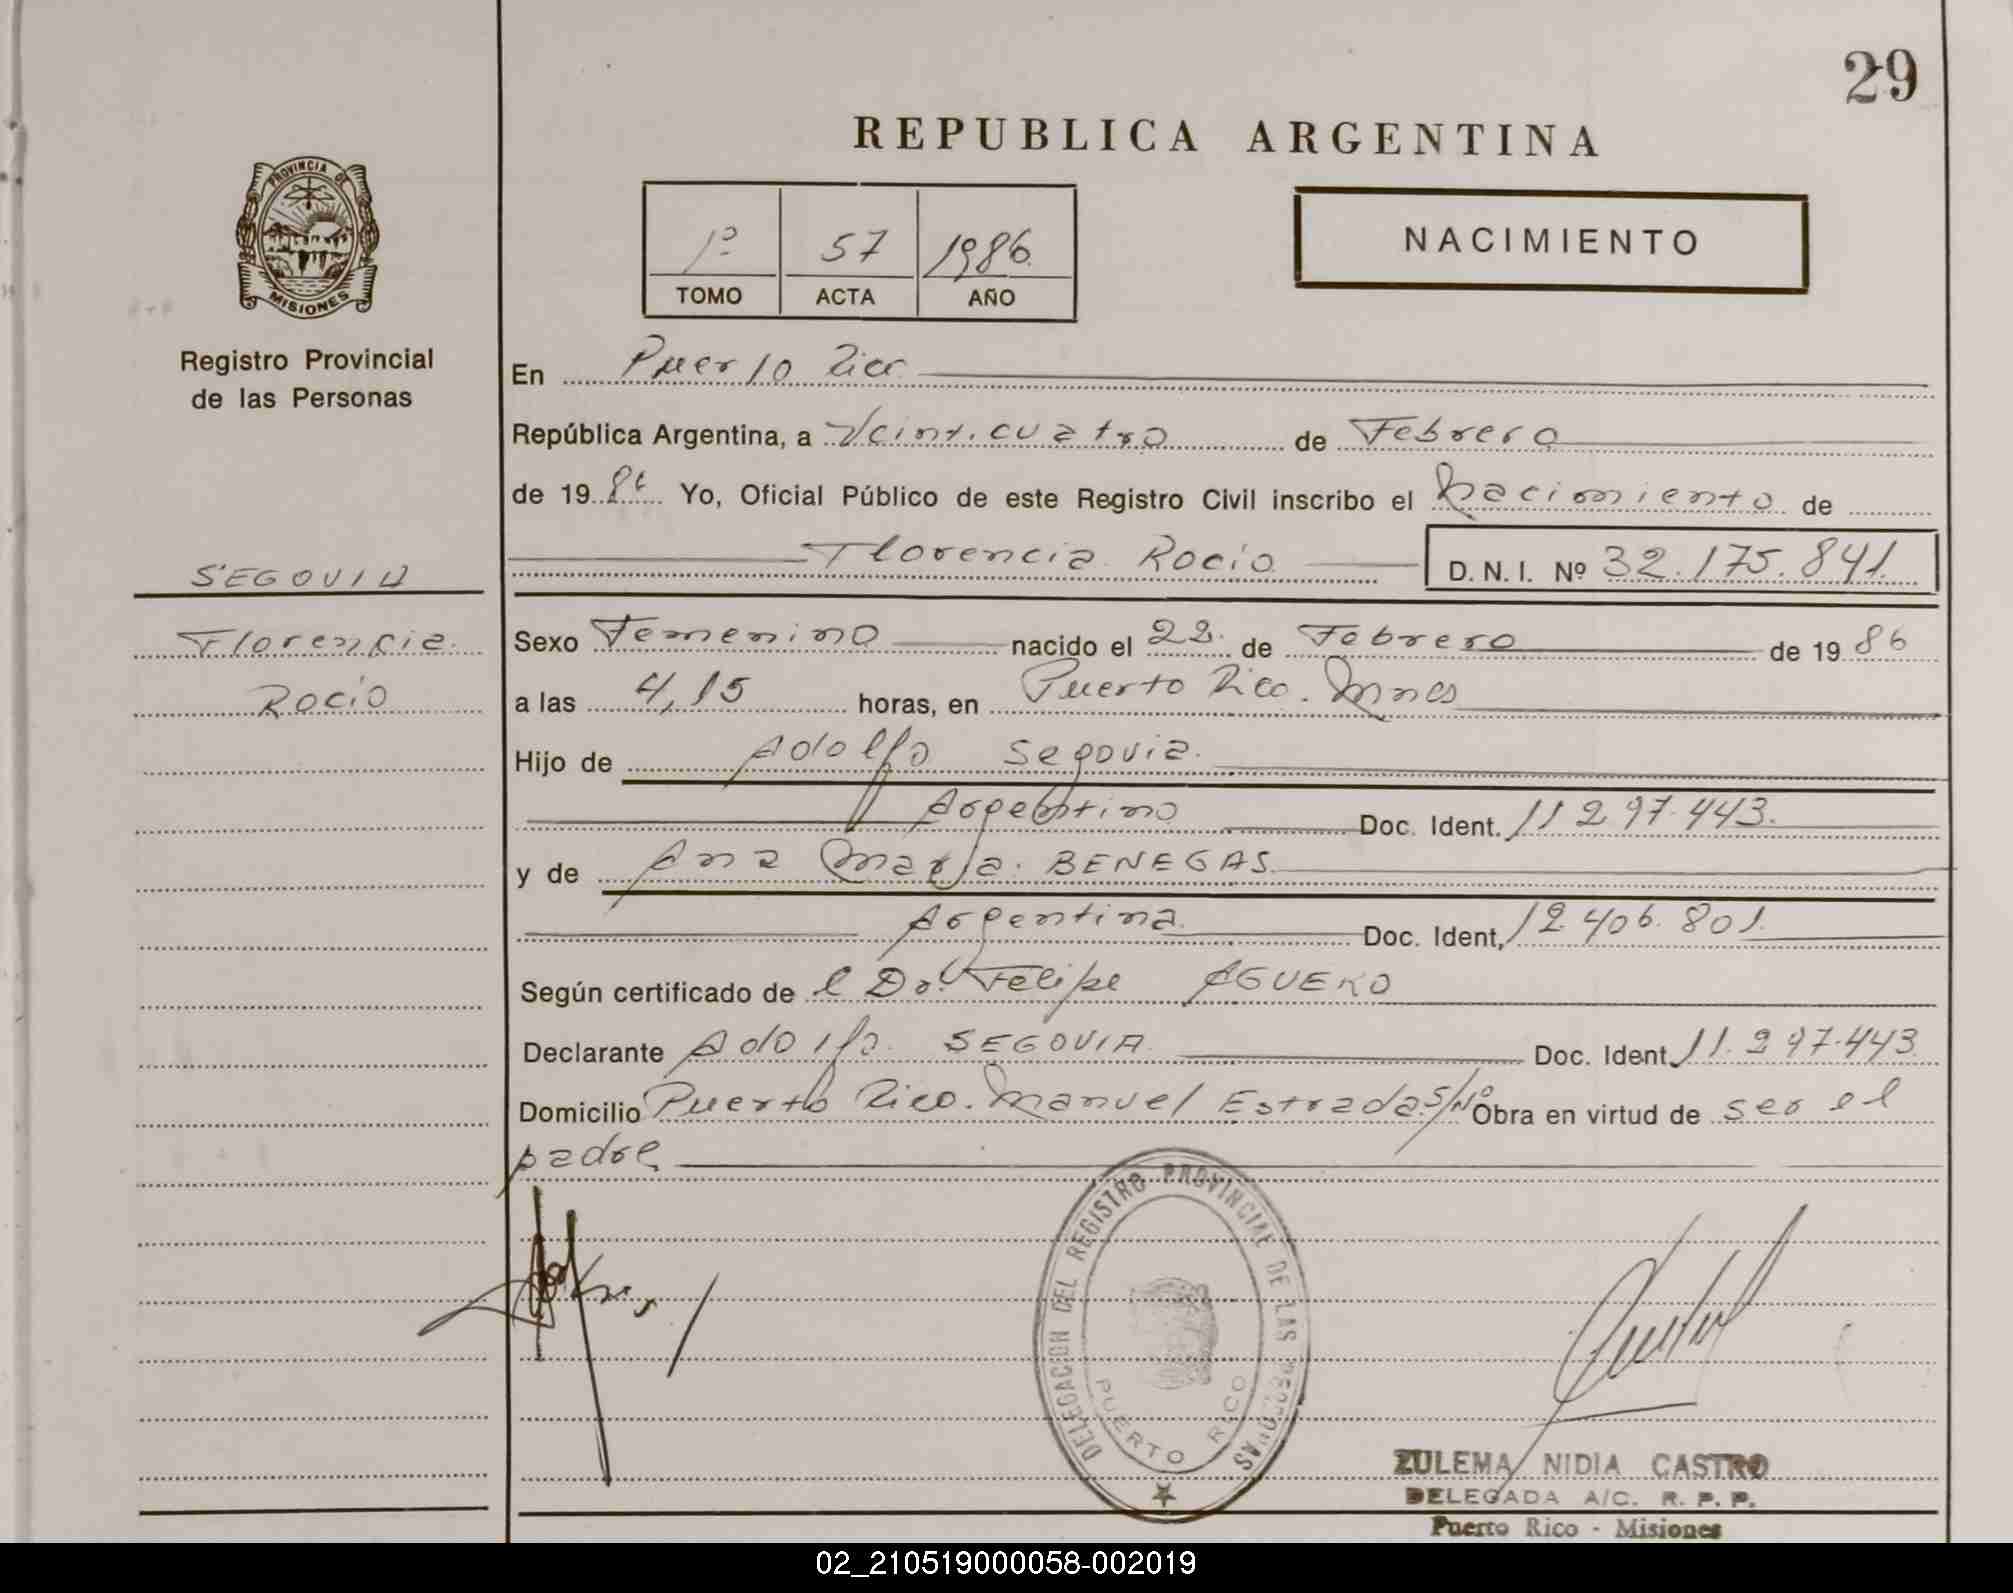 29
REPUBLICA ARGENTINA
PROVINCIA DE
MISIONES
Registro Provincial
de las Personas
1º 57 1986
TOMO ACTA AÑO
NACIMIENTO
En Puerto Rico
República Argentina, a Veinticuatro de Febrero
de 1986 Yo, Oficial Público de este Registro Civil inscribo el Nacimiento de
Florencia Rocío D. N. I. Nº 32.175.841
SEGOVIA
Florencia
Rocío
Sexo Femenino nacido el 22 de Febrero de 1986
a las 4,15 horas, en Puerto Rico. Mnes
Hijo de Adolfo Segovia
Argentino Doc. Ident. 11 297.443.
y de Ana María BENEGAS
Argentina Doc. Ident, 12.406.801.
Según certificado de l Dr. Felipe AGUERO
Declarante Adolfo SEGOVIA Doc. Ident. 11.297.443
Domicilio Puerto Rico. Manuel Estrada S/Nº Obra en virtud de ser el
padre
DELEGACION DEL REGISTRO PROVINCIAL DE LAS PERSONAS
PUERTO RICO
ZULEMA NIDIA CASTRO
DELEGADA A/C. R. P. P.
Puerto Rico - Misiones
02_210519000058-002019